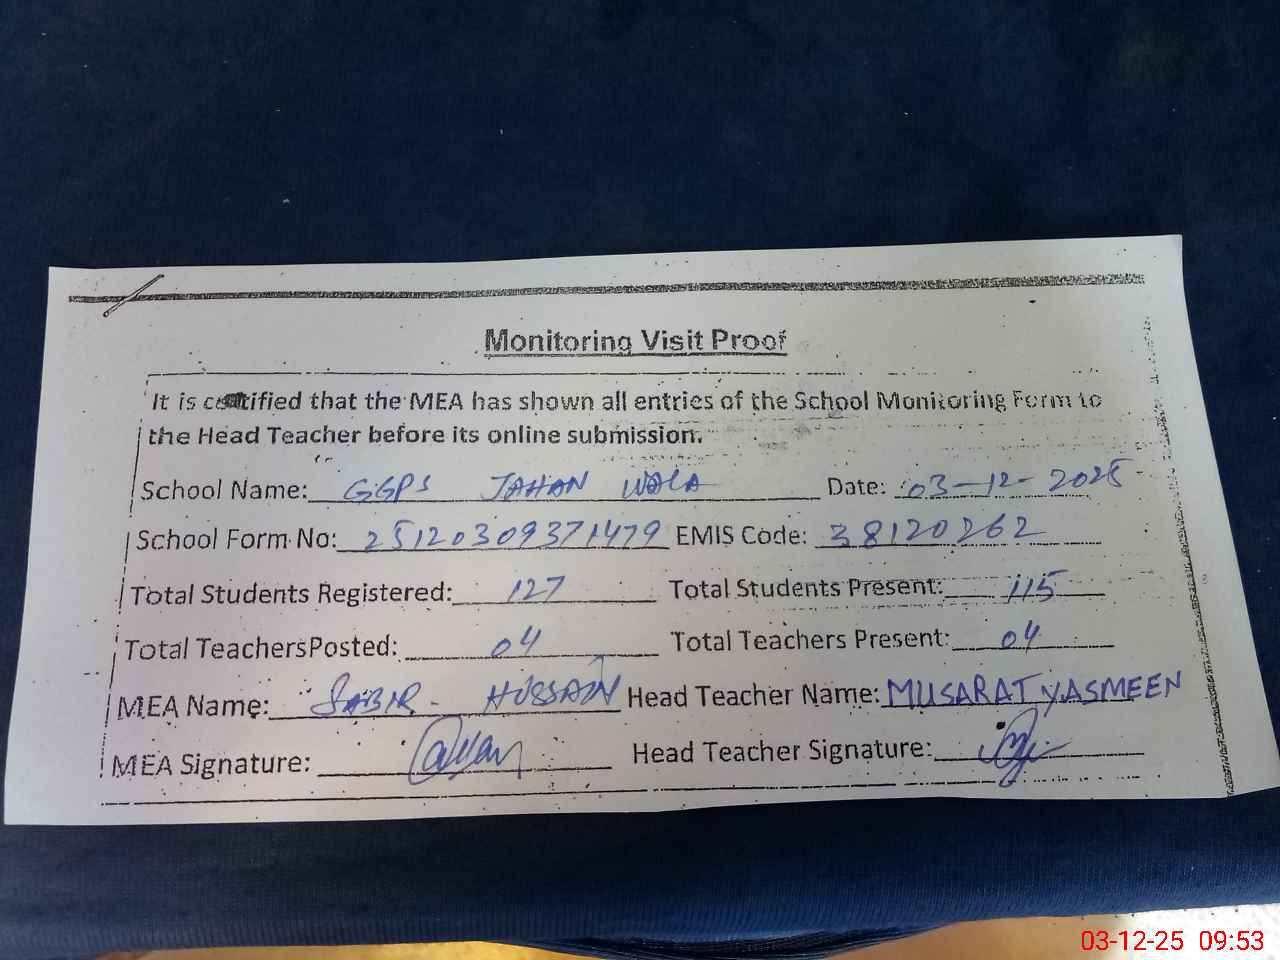 Monitoring Visit Proof
It is certified that the MEA has shown all entries of the School Monitoring Form to
the Head Teacher before its online submission.
School Name: GGPS JAHAN WALA Date: 03-12-2025
School Form No: 25120309371479 EMIS Code: 38120262
Total Students Registered: 127 Total Students Present: 115
Total TeachersPosted: 04 Total Teachers Present: 04
MEA Name: SABIR HUSSAIN Head Teacher Name: MUSARAT YASMEEN
MEA Signature: Head Teacher Signature:
03-12-25 09:53